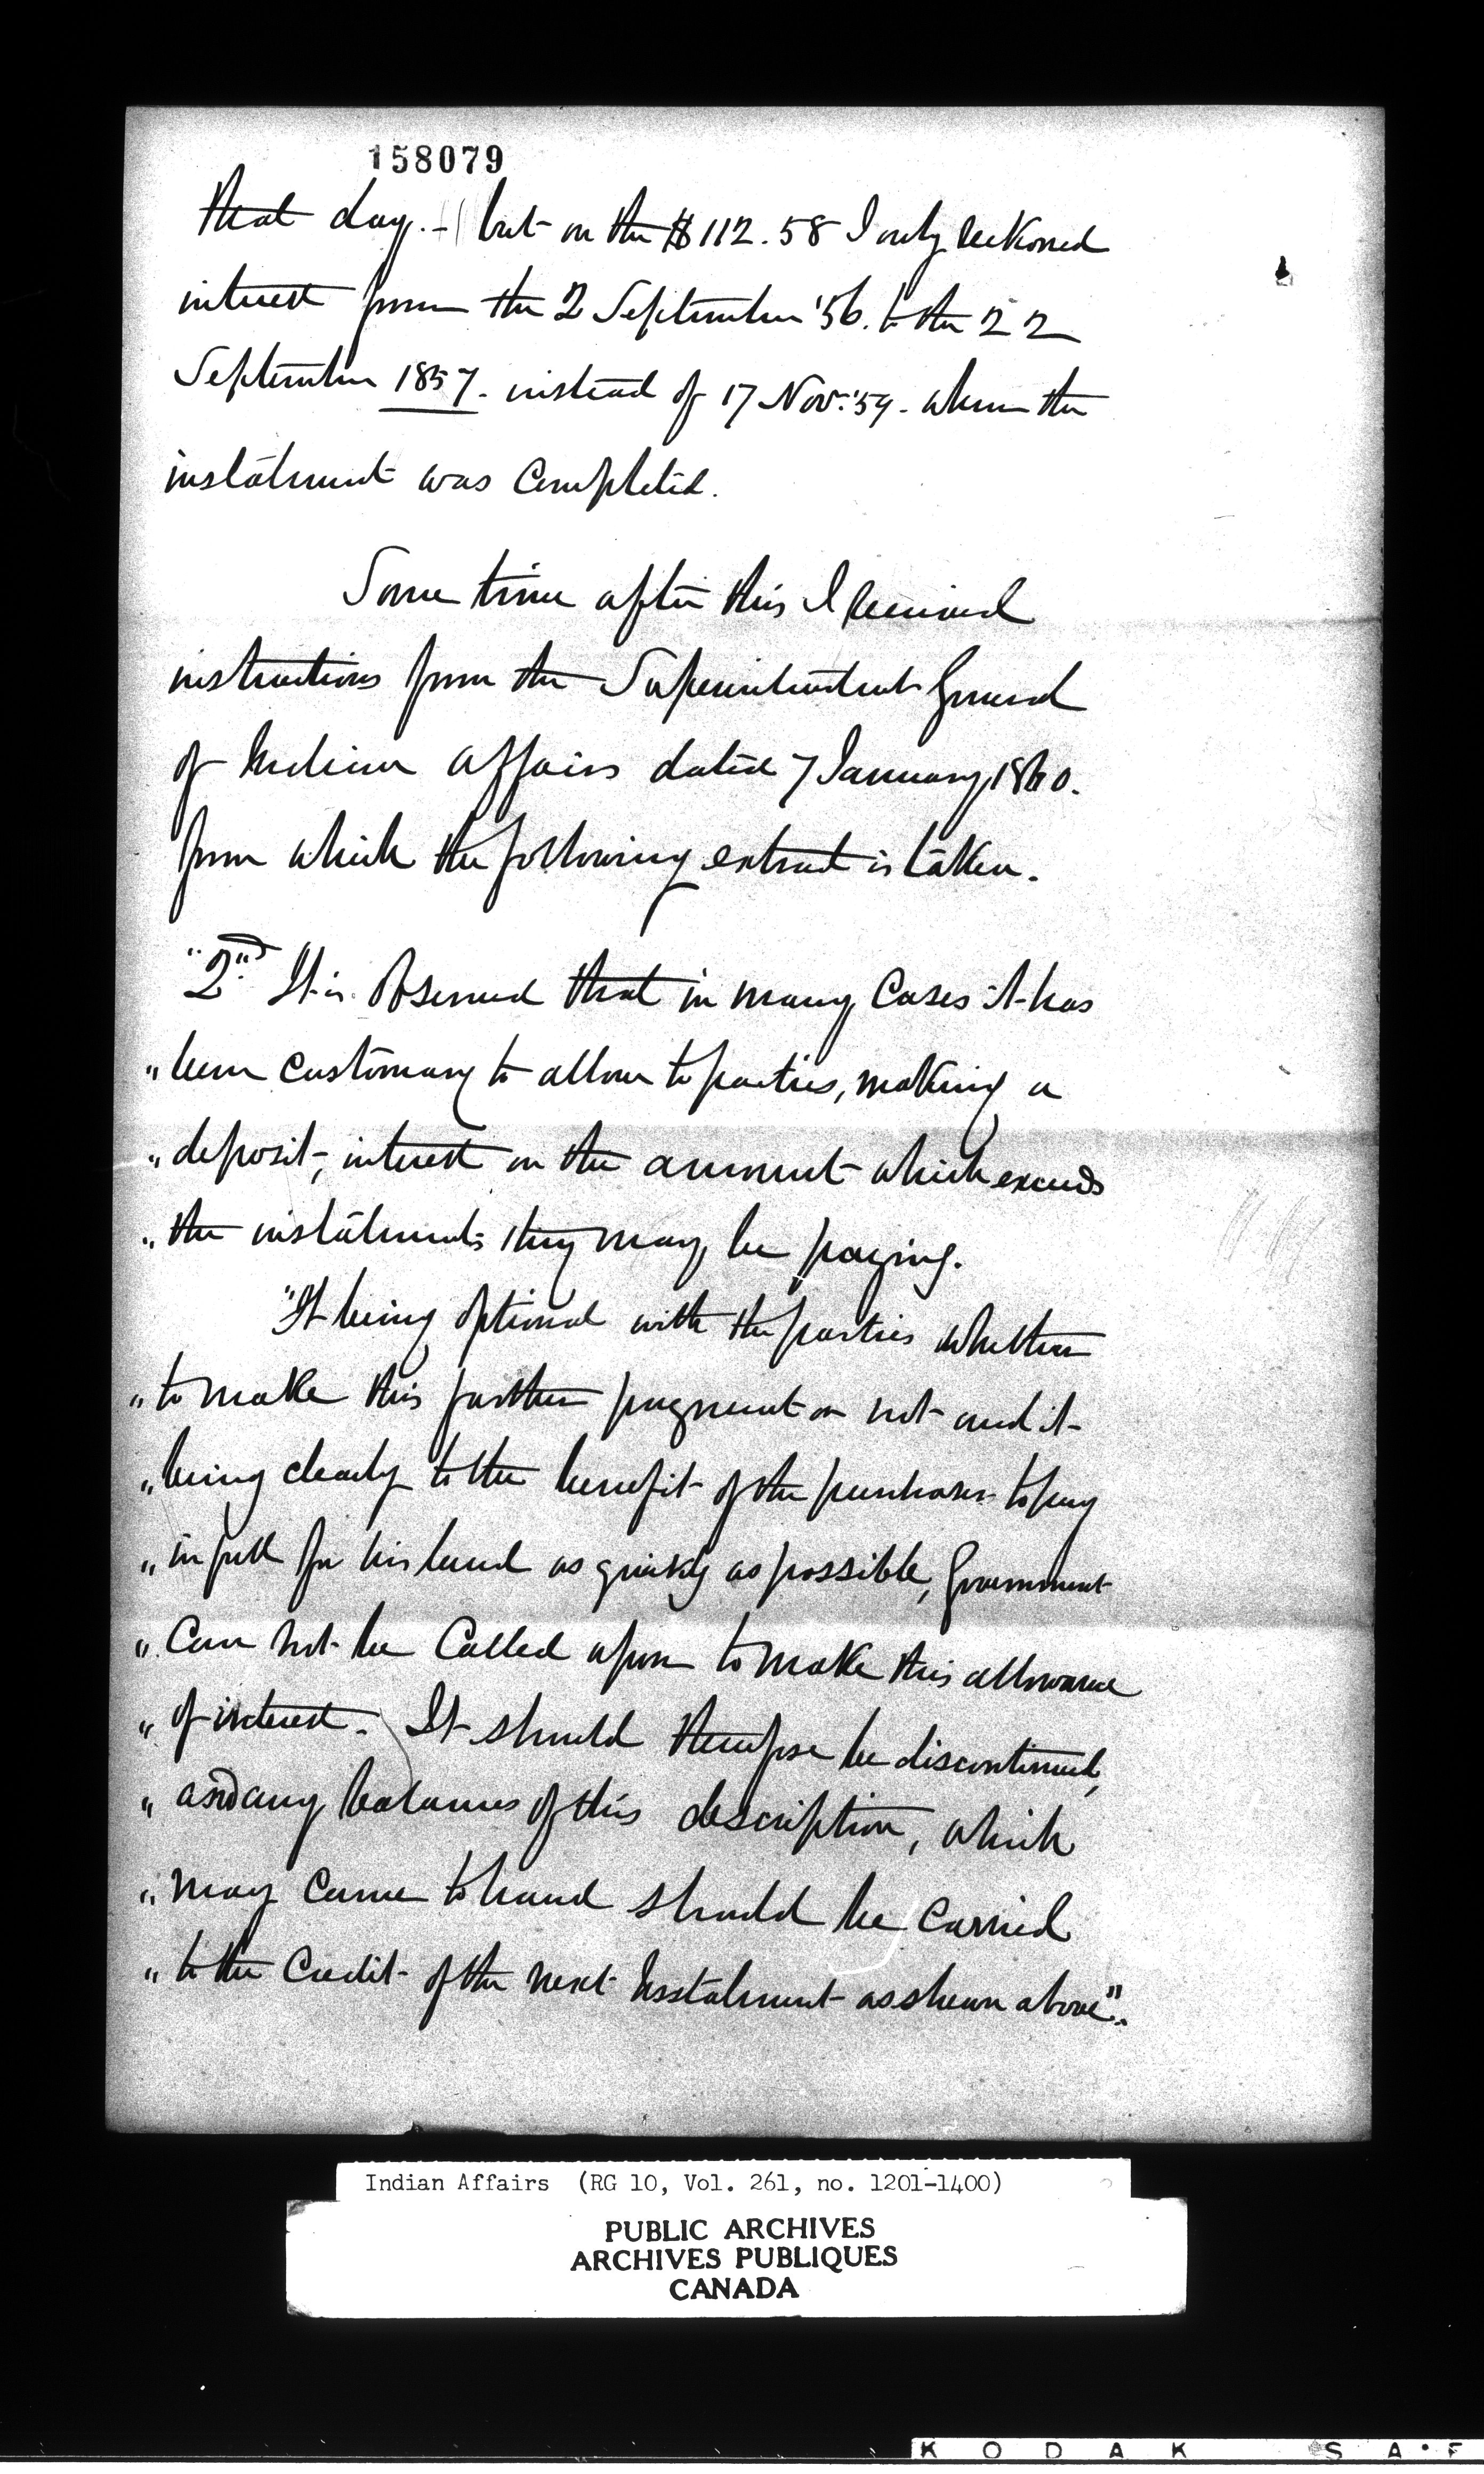 158079
that day. - but on the $112.58 I only reckoned
interest from the 2 September '56. to the 22
September 1857. instead of 17 Nov: '59. when the
instalment was completed.
Some time after this I received
instructions from the Superintendent General
of Indian Affairs dated 7 January 1860.
from which the following extract is taken.
"2nd. It is observed that in many Cases it has
" been customary to allow to parties, making a
" deposit, interest on the amount which exceeds
" the instalments they may be paying.
"It being optional with the parties whether
" to make this further payment or not and it
" being clearly to the benefit of the purchaser to pay
" in full for his land as quickly as possible, Government
" Can not be Called upon to make this allowance
" of interest. It should therefore be discontinued,
" and any balances of this description, which
" may come to hand should be carried
" to the Credit of the next Instalment as shewn above".
Indian Affairs (RG 10, Vol. 261, no. 1201-1400)
PUBLIC ARCHIVES
ARCHIVES PUBLIQUES
CANADA
KODAK SAF